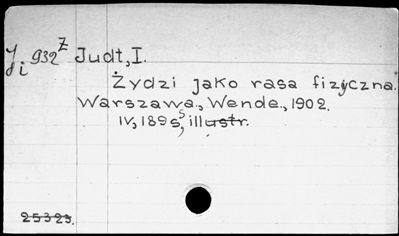 Y 932 Z Judt, I.
di
Żydzi jako rasa fizyczna.
Warszawa., Wende., 1902.
IV, 189 s, illustr.
25323.